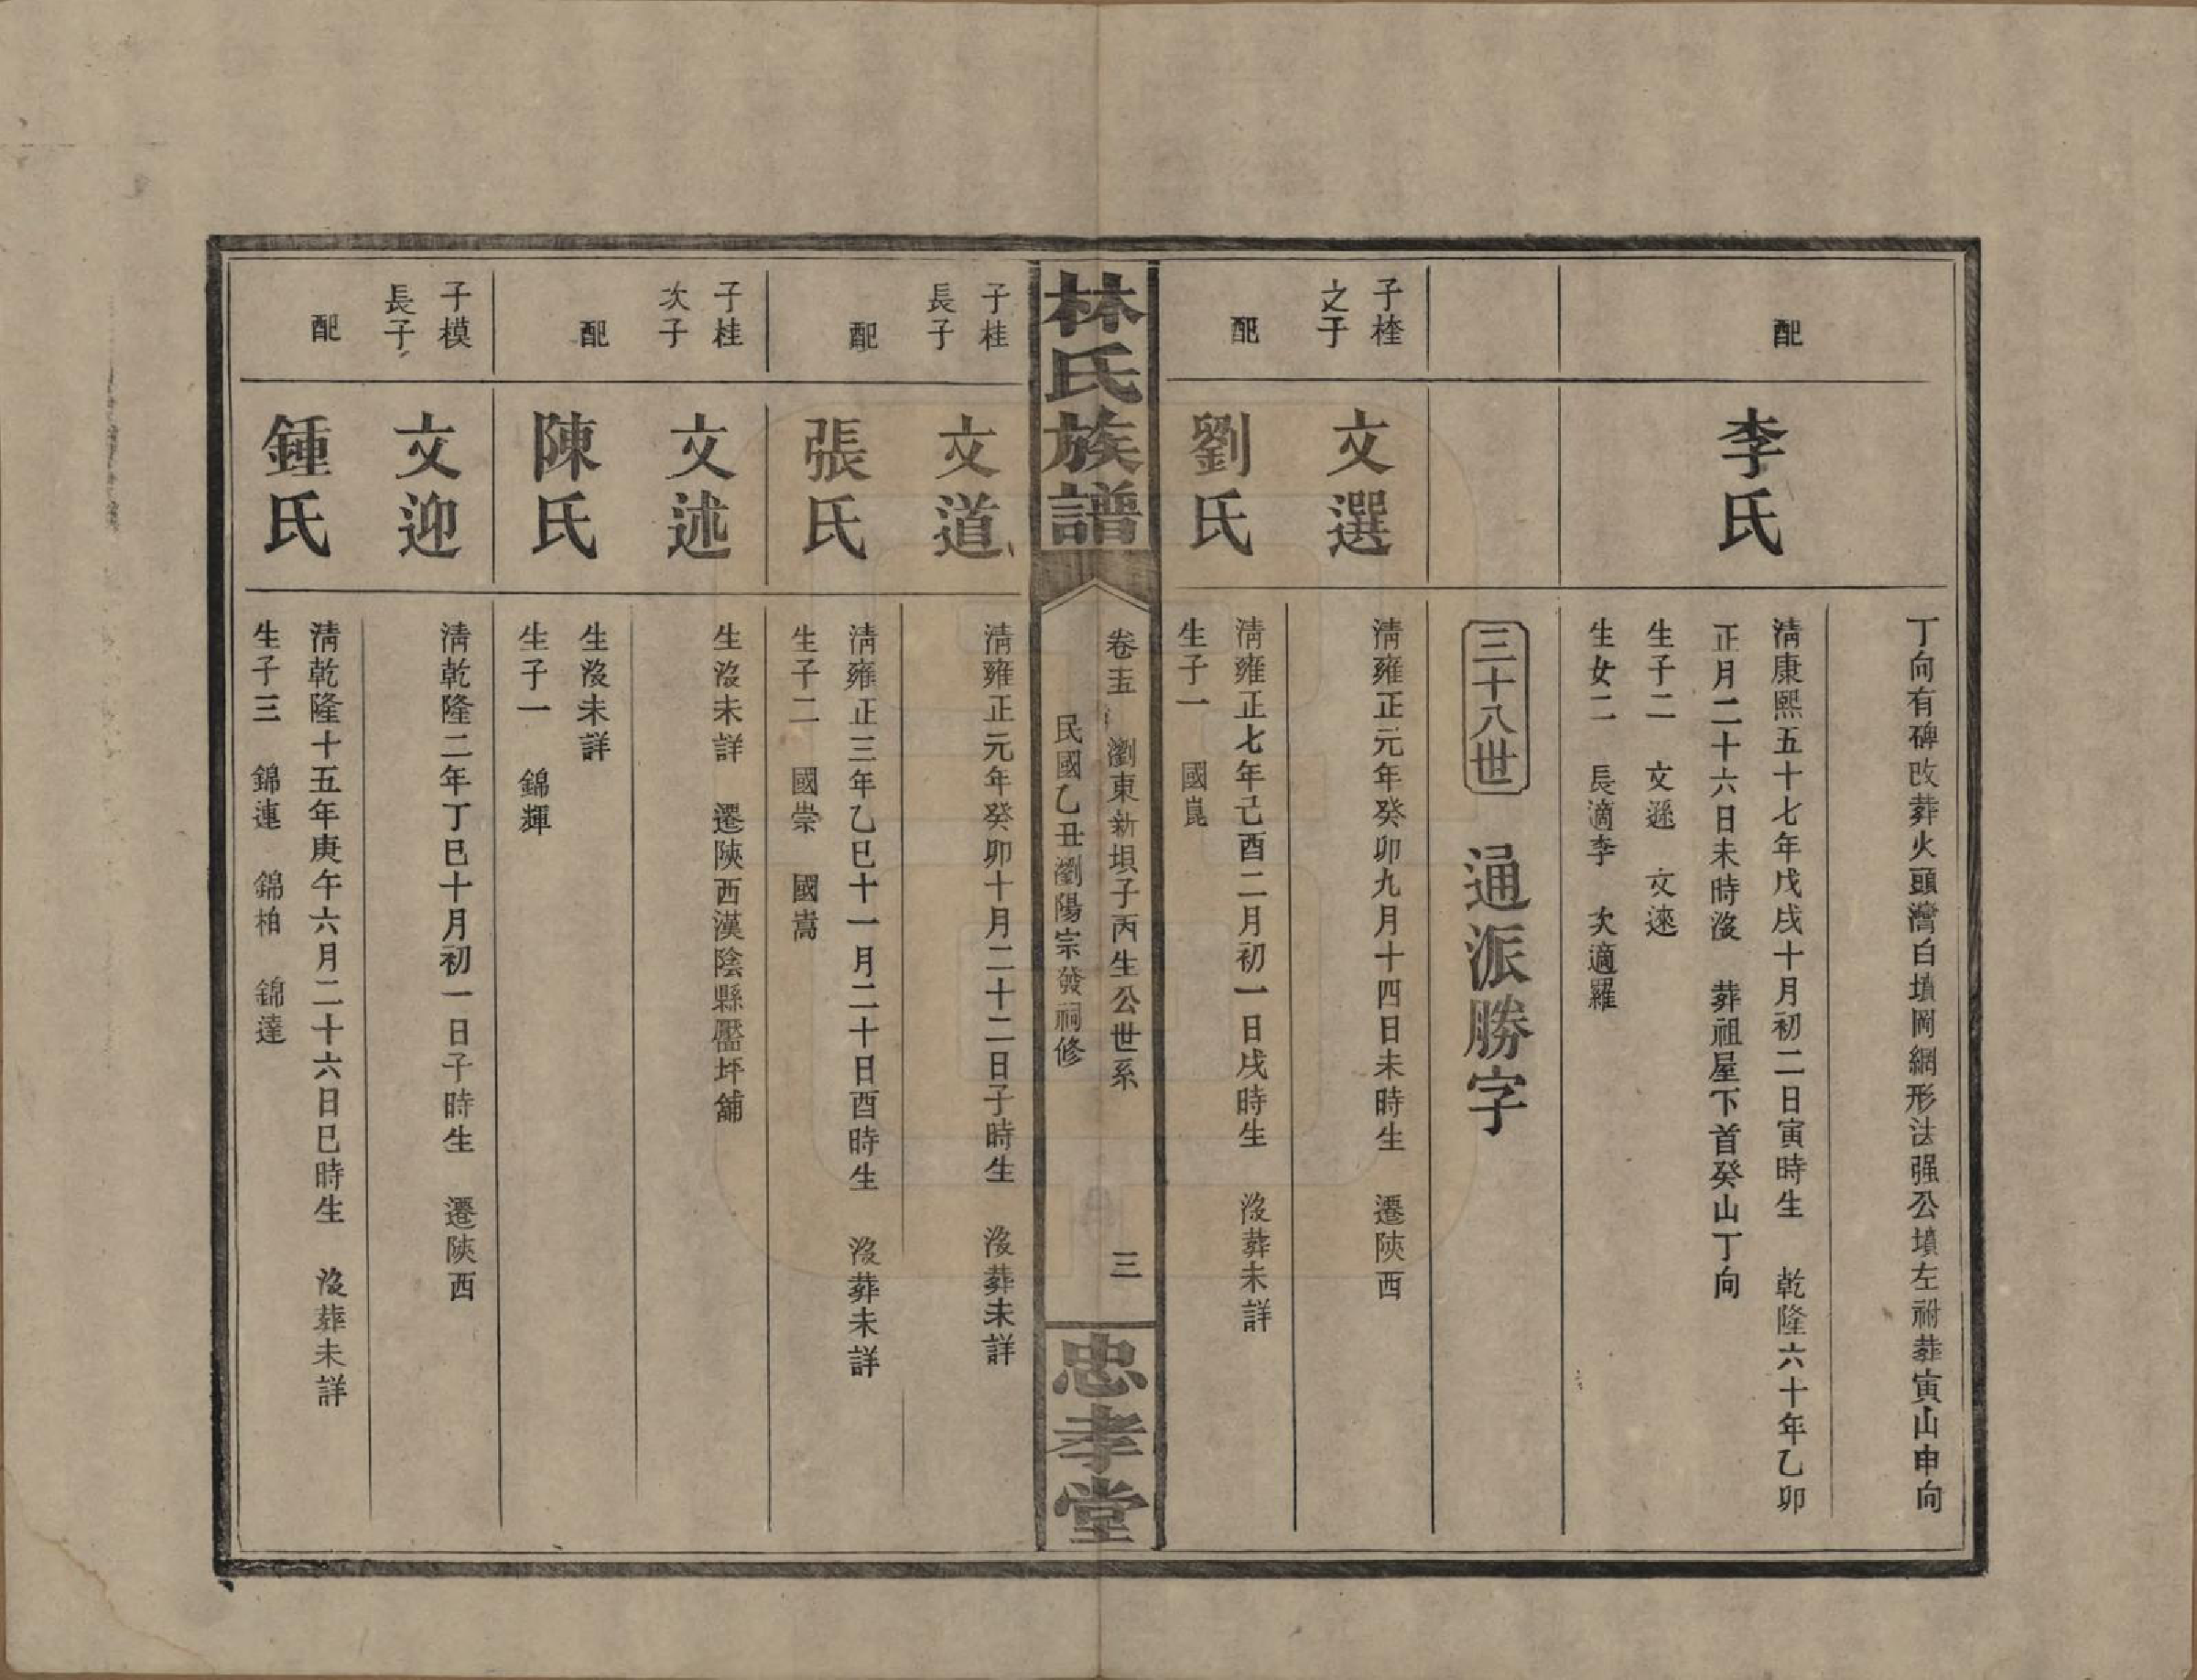 丁向有碑改葬火頭灣白墳岡網形法强公墳左祔葬寅山申向
配
李氏
清康熙五十七年戊戌十月初二日寅時生 乾隆六十年乙卯
正月二十六日未時沒 葬祖屋下首癸山丁向
生子二 文遜 文速
生女二 長適李 次適羅
三十八世 通派勝字
子桂
之子
文選
清雍正元年癸卯九月十四日未時生 遷陝西
配
劉氏
清雍正七年己酉二月初一日戌時生 沒葬未詳
生子一 國崑
林氏族譜
卷十五 瀏東新垻子丙生公世系
民國乙丑瀏陽宗發祠修
三
忠孝堂
子桂
長子
文道
清雍正元年癸卯十月二十二日子時生 沒葬未詳
配
張氏
清雍正三年乙巳十一月二十日酉時生 沒葬未詳
生子二 國崇 國嵩
子桂
次子
文述
生沒未詳 遷陝西漢陰縣壓坪舖
配
陳氏
生沒未詳
生子一 錦輝
子模
長子
文迎
清乾隆二年丁巳十月初一日子時生 遷陝西
配
鍾氏
清乾隆十五年庚午六月二十六日巳時生 沒葬未詳
生子三 錦連 錦柏 錦達